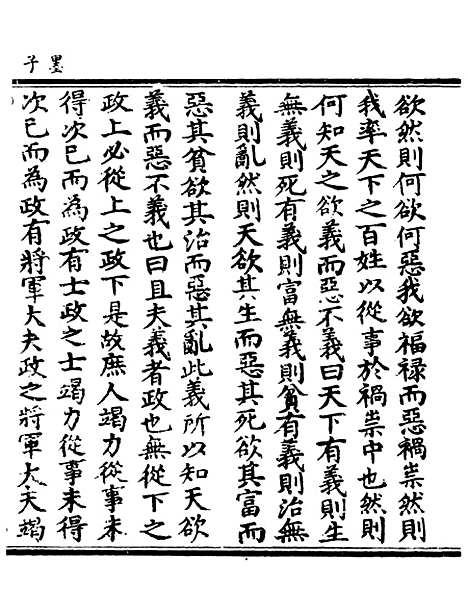 墨子
欲然則何欲何惡我欲福祿而惡禍祟然則
我率天下之百姓以從事於禍祟中也然則
何知天之欲義而惡不義曰天下有義則生
無義則死有義則富無義則貧有義則治無
義則亂然則天欲其生而惡其死欲其富而
惡其貧欲其治而惡其亂此義所以知天欲
義而惡不義也曰且夫義者政也無從下之
政上必從上之政下是故庶人竭力從事未
得次已而為政有士政之士竭力從事未得
次已而為政有將軍大夫政之將軍大夫竭